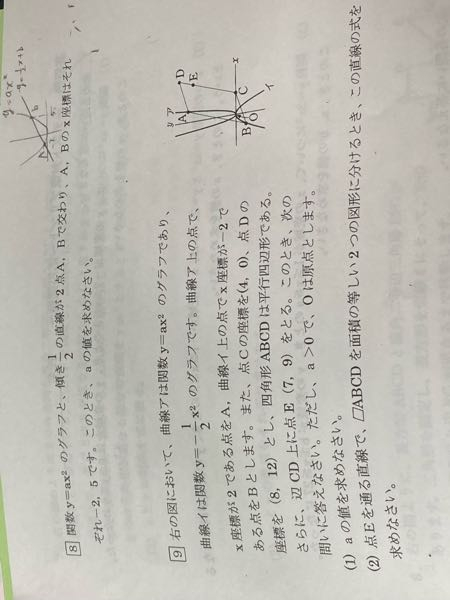 y=ax²
y=½x+b
8 関数y=ax²のグラフと、傾き1/2の直線が2点A，Bで交わり、A，Bのx座標はそれ
ぞれ−2，5です。このとき、aの値を求めなさい。
9 右の図において、曲線アは関数y=ax²のグラフであり、
曲線イは関数y=−1/2x²のグラフです。曲線ア上の点で、
x座標が2である点をA，曲線イ上の点でx座標が−2で
ある点をBとします。また、点Cの座標を(4，0)、点Dの
座標を(8，12)とし、四角形ABCDは平行四辺形である。
さらに、辺CD上に点E(7，9)をとる。このとき、次の
問いに答えなさい。ただし、a＞0で、Oは原点とします。
(1) aの値を求めなさい。
(2) 点Eを通る直線で、▱ABCDを面積の等しい2つの図形に分けるとき、この直線の式を
求めなさい。
y
ア
A
D
E
x
C
B
O
イ